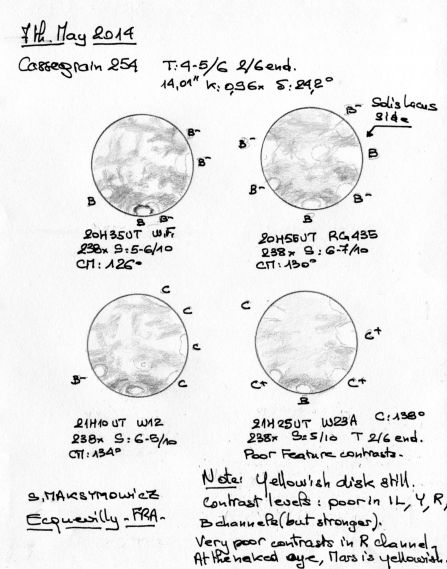 7th. May 2014
Cassegrain 254 T: 4-5/6 2/6 end.
14,01" K: 0,96x δ: 24,2°
B-
B-
B
B
B-
Solis Lacus
side
B-
B-
B
B-
B-
B
20H35UT
238x S: 5-6/10
CM: 126°
20H55UT RG435
238x S: 6-7/10
CM: 130°
C
C
C
B-
C
C
C+
C+
C+
B
21H10 UT W12
238x S: 6-5/10
CM: 134°
21H25UT W23A C: 138°
238x S: 5/10 T 2/6 end.
Poor Feature contrasts.
S. MAKSYMOWICZ
Ecquevilly - FRA.
Note: Yellowish disk still.
Contrast levels: poor in IL, Y, R,
B channels (but stronger).
Very poor contrasts in R channel.
At the naked eye, Mars is yellowish.